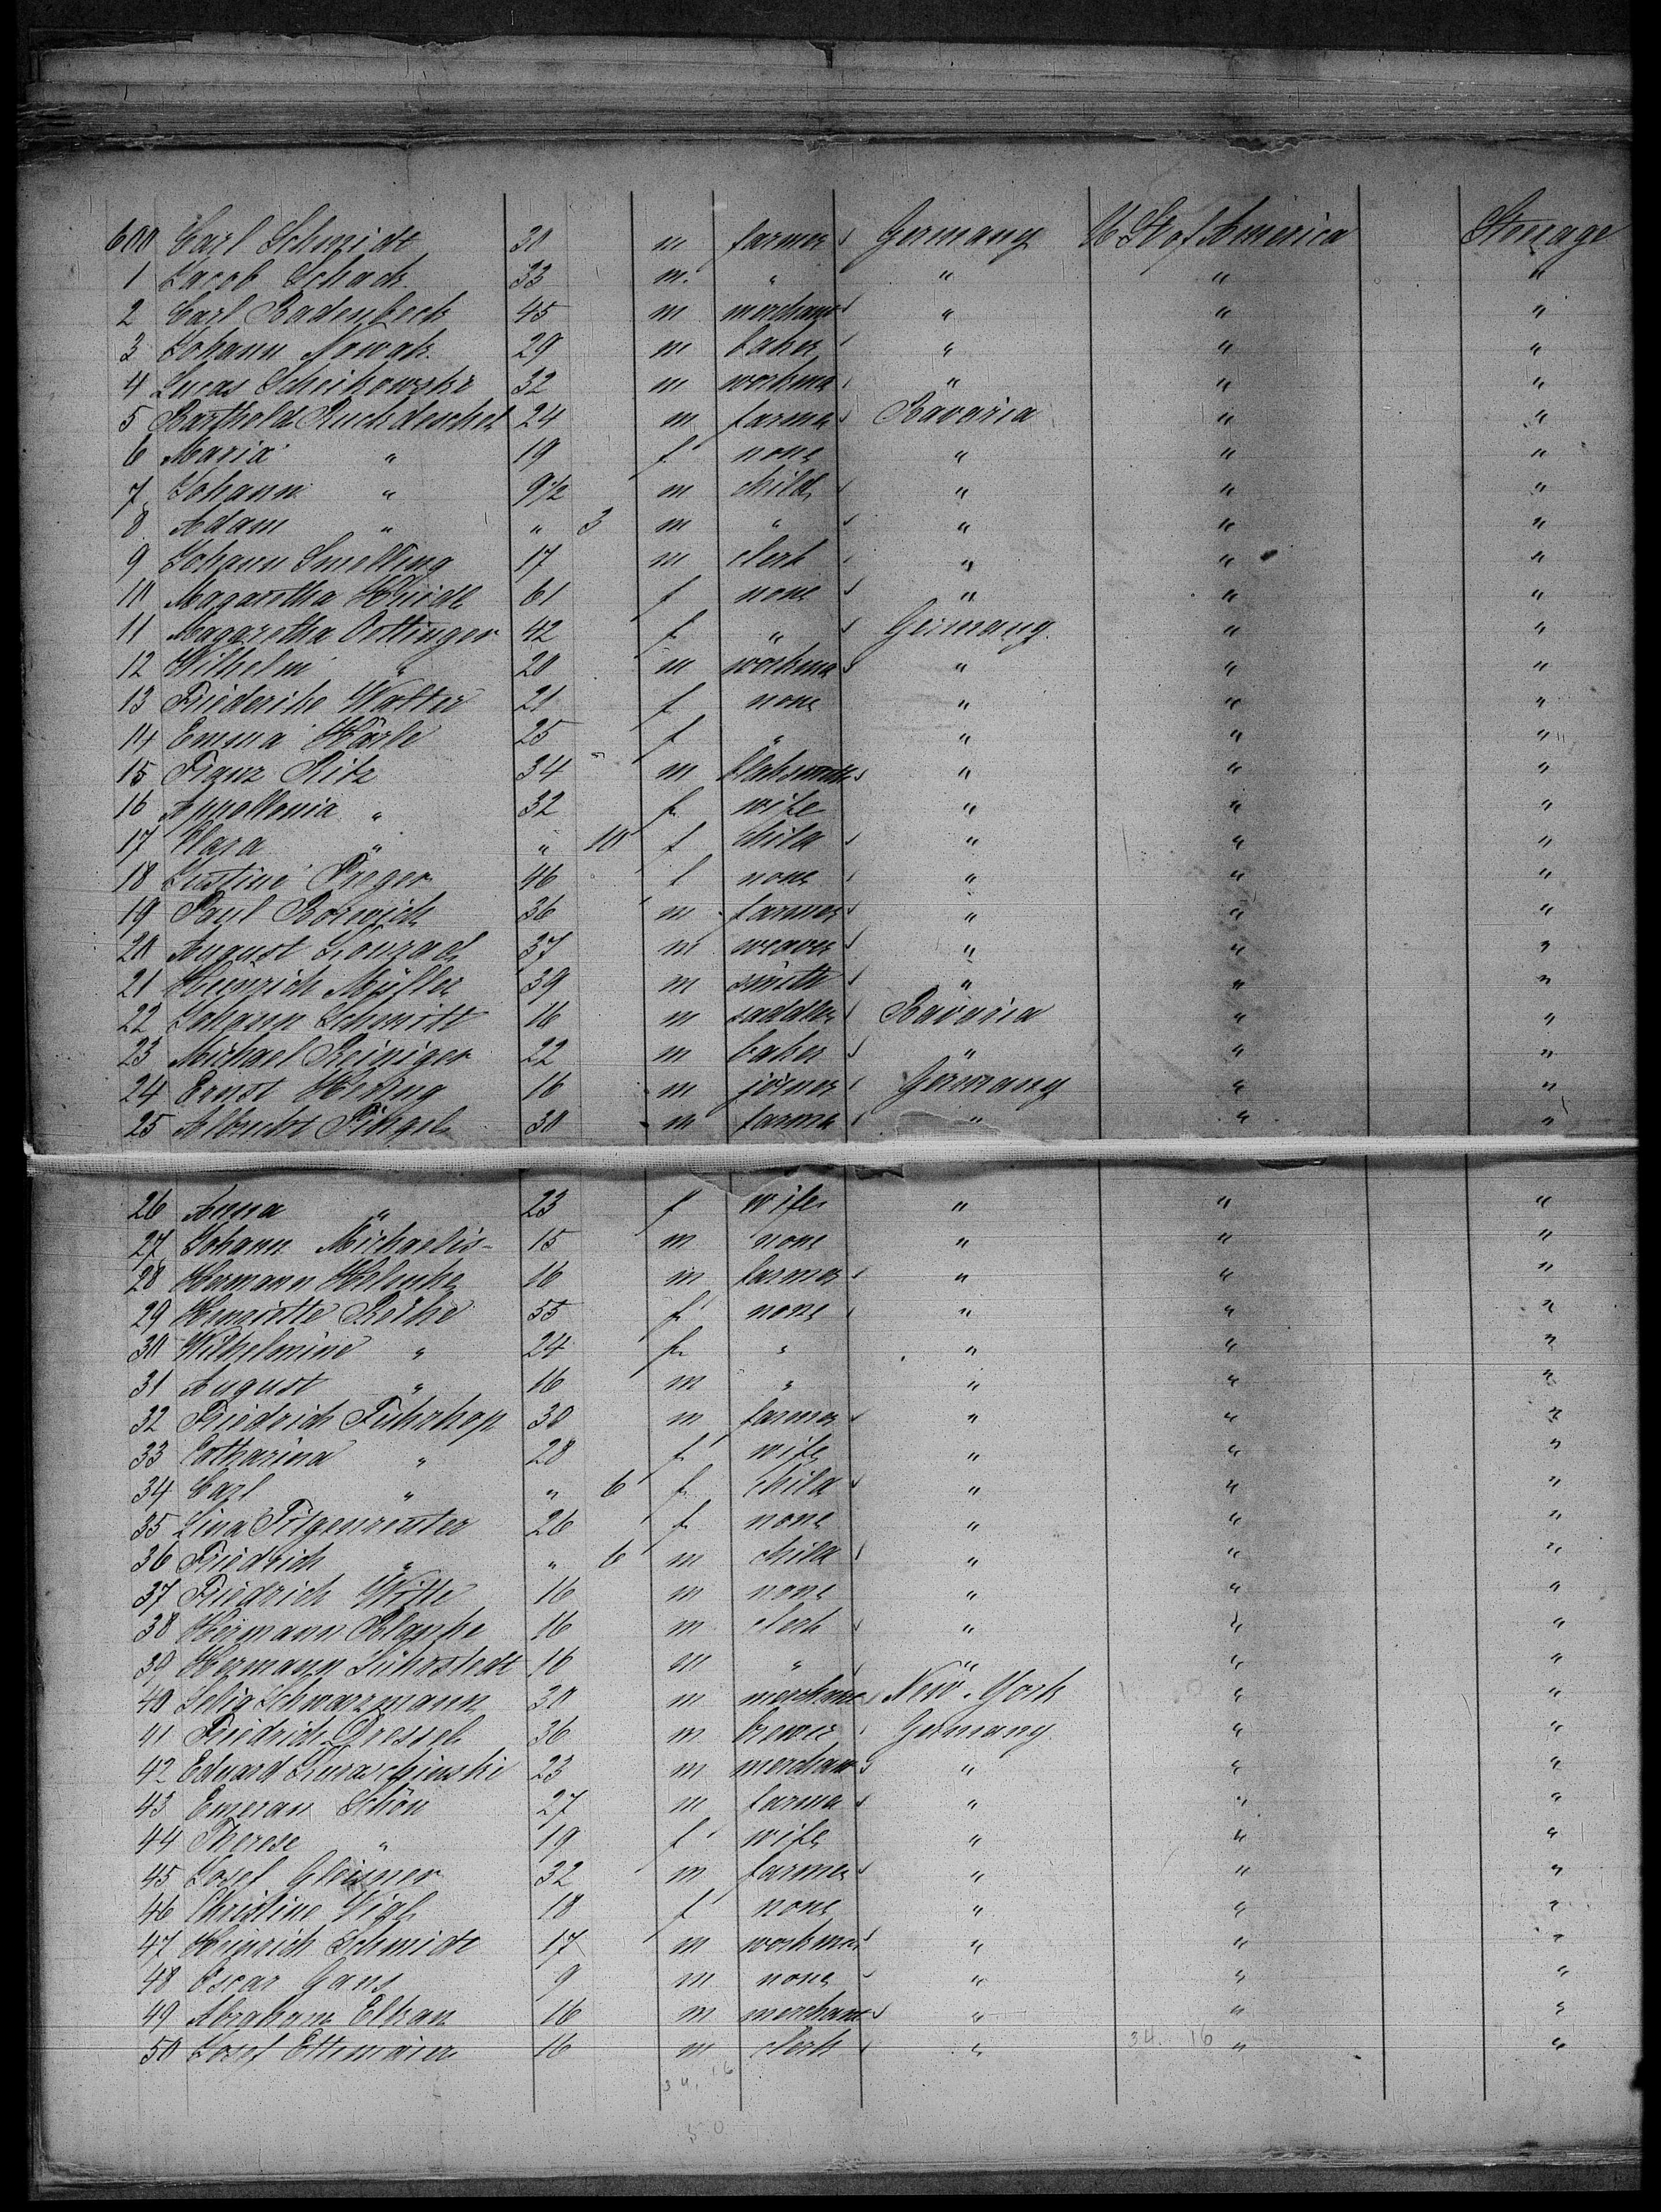 600 Carl Schmidt 30 m farmer Germany U St of America Steerage
1 Jacob Schack 33 m. " " " "
2 Carl Badenbeck 45 m merchant " " "
3 Johann Nowak 29 m baker " " "
4 Lucas Scheikowski 32 m workma " " "
5 Barthold Ruchdeschel 24 m farmer Bavaria " "
6 Maria " 19 f none " " "
7 Johann " 9 1/2 m child " " "
8 Adam " " 3 m " " " "
9 Johann Smelling 17 m clerk " " "
10 Magaretha 61 f none " " "
11 Magaretha Oettinger 42 f " Germany " "
12 Wilhelm " 20 m workma " " "
13 Friederike Walter 21 f none " " "
14 Emma Härle 25 f " " " "
15 Franz Ritz 34 m " " "
16 Appollonia " 32 f wife " " "
17 Clara " " 10 f child " " "
18 Justine Preger 46 f none " " "
19 Paul Borwich 36 m farmer " " "
20 August Conrad 37 m weaver " " "
21 Heinrich Müller 39 m smith " " "
22 Johann Schmitt 16 m saddler Bavaria " "
23 Michael Reiniger 22 m baker " " "
24 Ernst Hering 16 m joiner Germany " "
25 Albrecht Pingel 30 m farmer " " "
26 Anna " 23 f wife " " "
27 Johann Michaelis 15 m none " " "
28 Hermann Helmke 16 m farmer " " "
29 Henriette Reihe 55 f none " " "
30 Wilhelmine " 24 f " " " "
31 August " 16 m " " " "
32 Friedrich Fuhrhop 30 m farmer " " "
33 Catharina " 28 f wife " " "
34 Carl " " 6 f child " " "
35 Lina Tilgenreuter 26 f none " " "
36 Friedrich " " 6 m child " " "
37 Friedrich Witte 16 m none " " "
38 Hermann Blanke 16 m clerk " " "
39 Hermann Lührstedt 16 m " " " "
40 Selig Schwarzmann 30 m merchant New-York " "
41 Friedrich Dressel 36 m brewer Germany " "
42 Eduard 23 m merchant " " "
43 Emeran Schön 27 m farmer " " "
44 Therese " 19 f wife " " "
45 Josef Gleisner 32 m farmer " " "
46 Christine Vigl 18 f none " " "
47 Heinrich Schmidt 17 m workman " " "
48 Oscar Gans 9 m none " " "
49 Abraham Elkan 16 m merchant " " "
50 Josef Ettmaier 16 m clerk " 34. 16 " "
34, 16
50